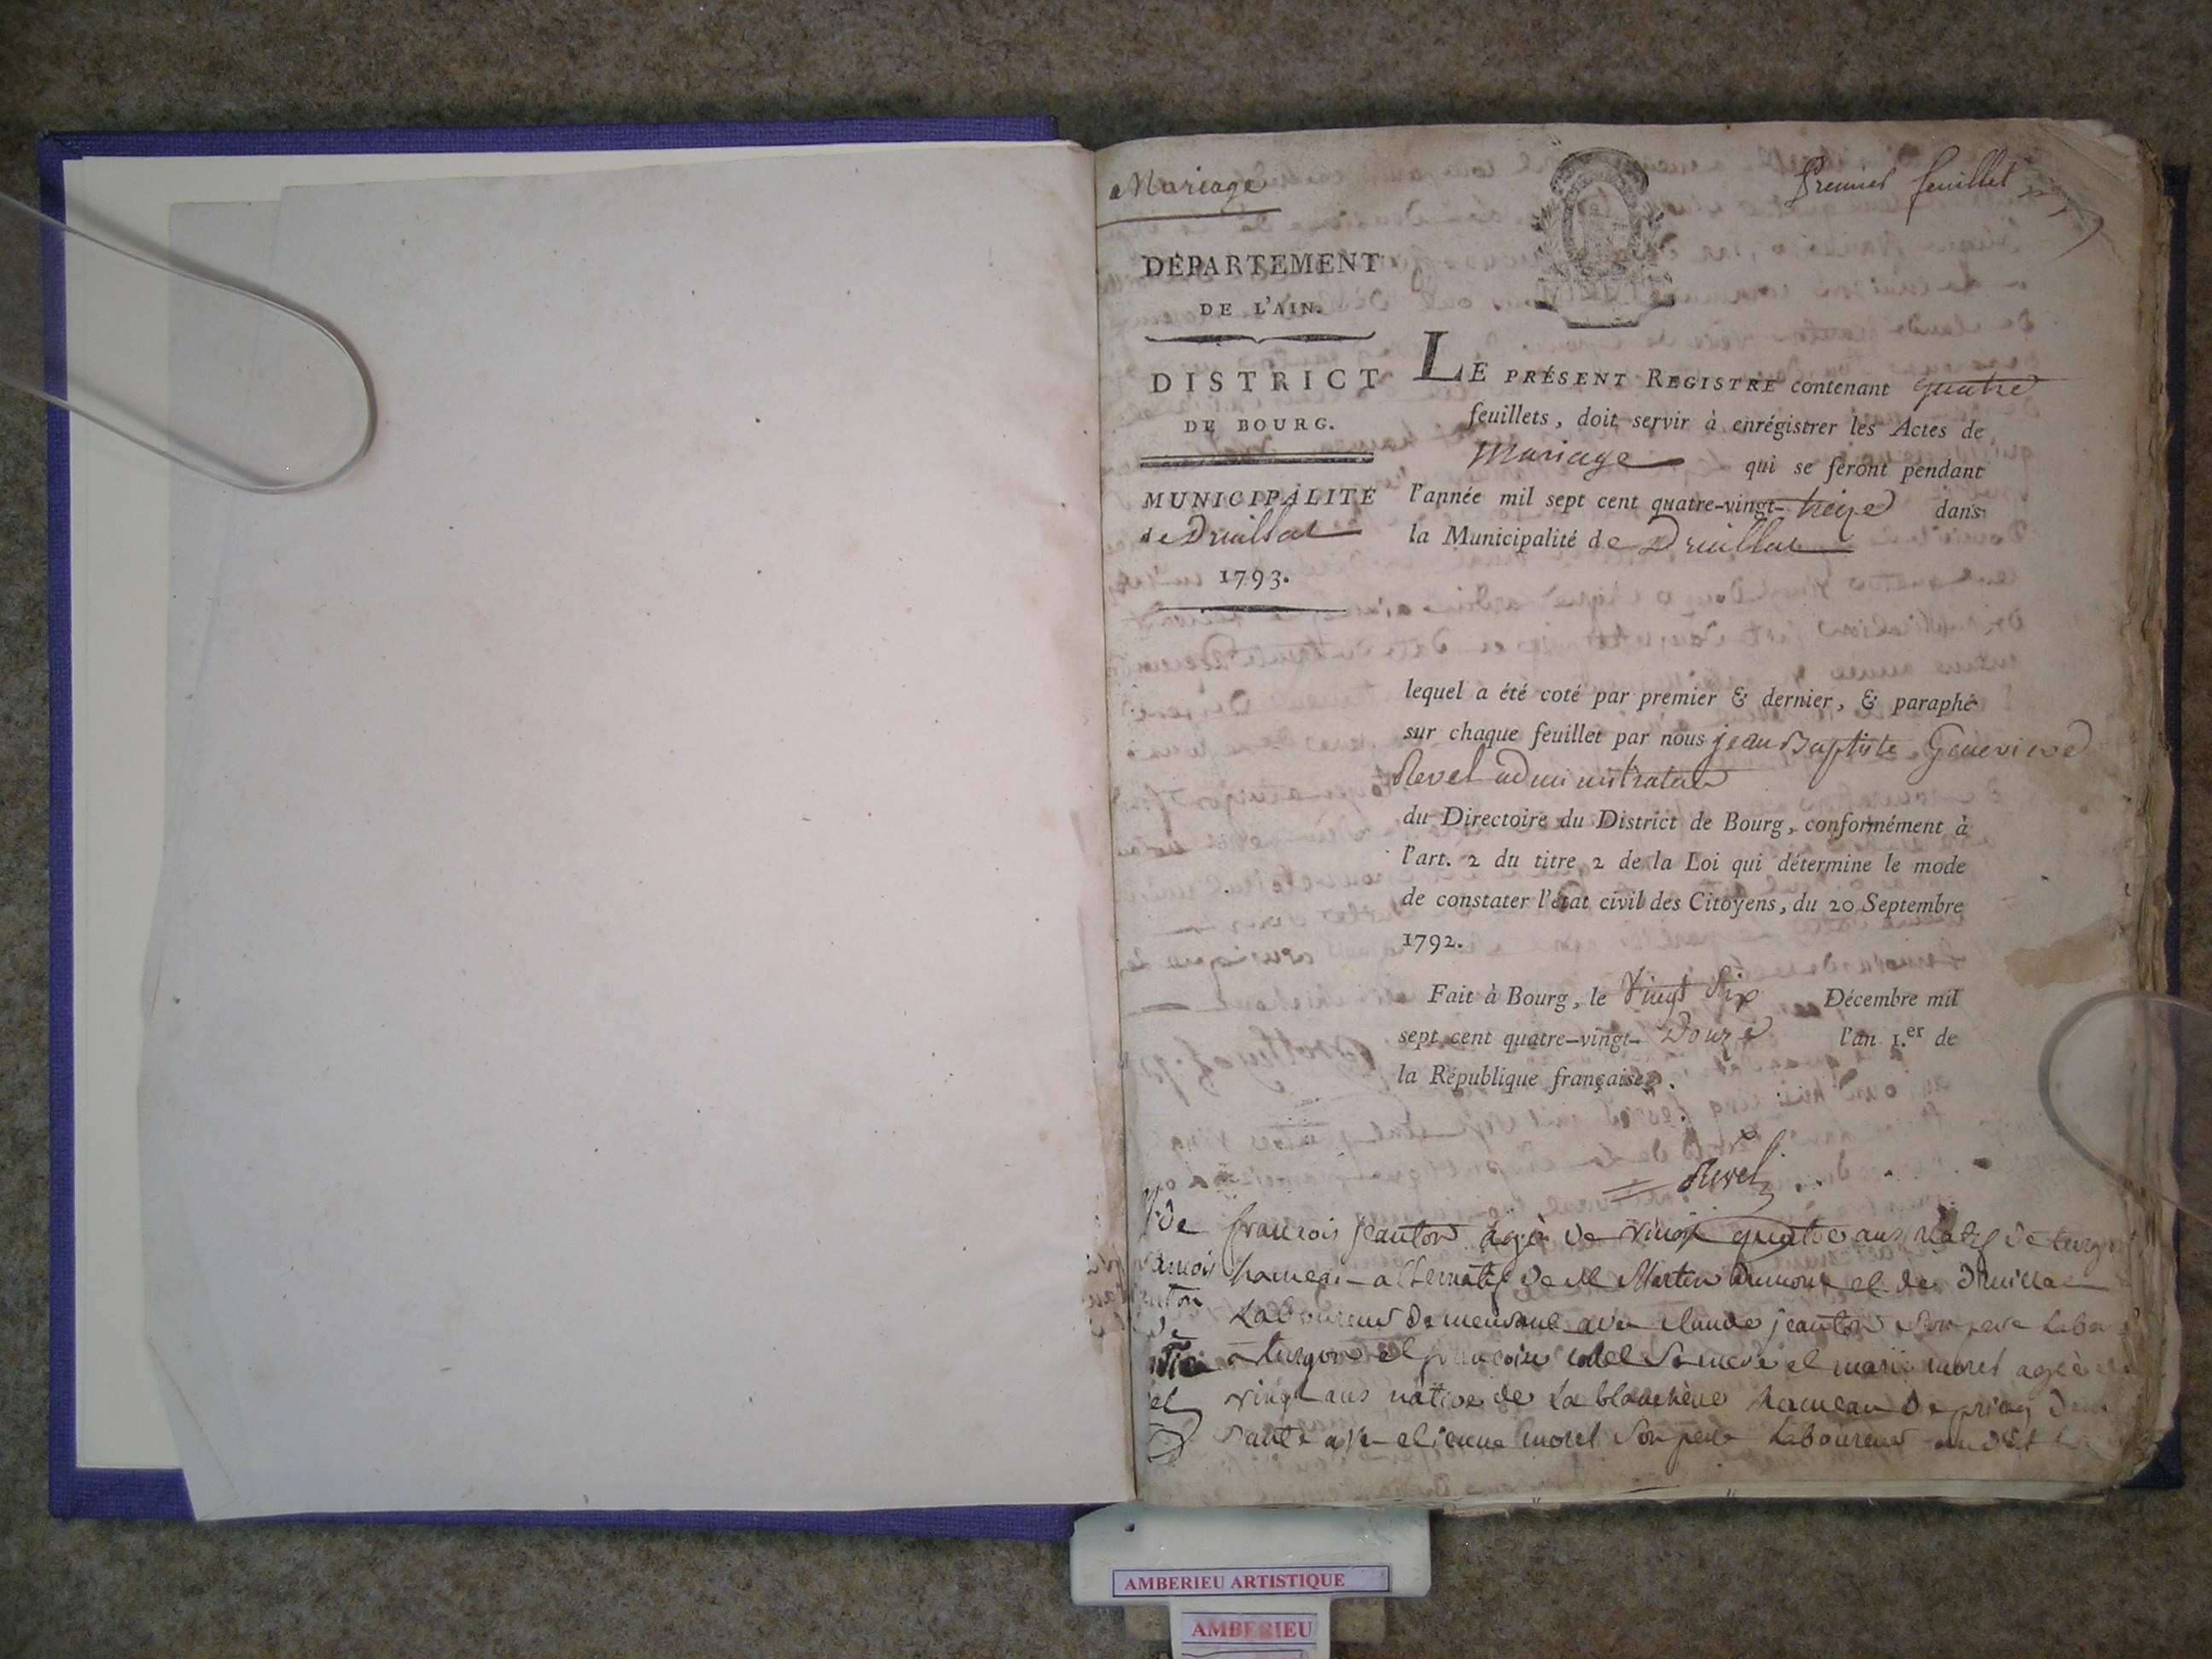 Mariage
Premier feuillet
DÉPARTEMENT
DE L'AIN.
DISTRICT
DE BOURG.
MUNICIPALITÉ
de Druillat
1793.
LE PRÉSENT REGISTRE contenant quatre
feuillets, doit servir à enrégistrer les Actes de
Mariage qui se feront pendant
l'année mil sept cent quatre-vingt-treize dans
la Municipalité de Druillat
lequel a été coté par premier & dernier, & paraphé
sur chaque feuillet par nous jean Baptiste Genevieve
Revel administrateur
du Directoire du District de Bourg, conformément à
l'art. 2 du titre 2 de la Loi qui détermine le mode
de constater l'état civil des Citoyens, du 20 Septembre
1792.
Fait à Bourg, le Vingt Six Décembre mil
sept cent quatre-vingt-Douze l'an 1.er de
la République française.
Revel
francois jeanton agé de vingt quatre ans natif de turgon
hameau alternatif de st Martin Dumont et de druillat
Laboureur demeurant avec claude jeanton son pere
a turgon et francoise sa mere et marie morel agée
vingt ans native de la blanchere hameau de priay
avec etienne morel son pere Laboureur audit
AMBERIEU ARTISTIQUE
AMBERIEU